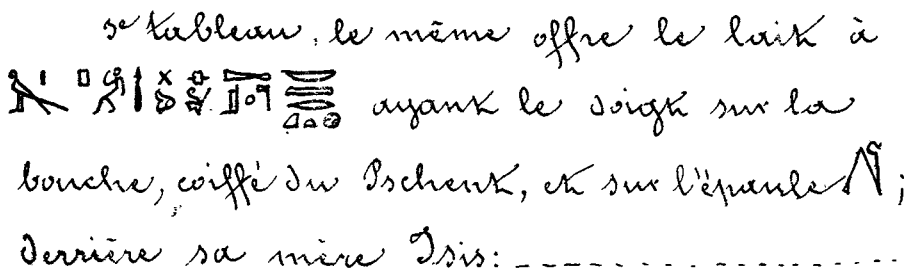 5e tableau, le même offre le lait à
ayant le doigt sur la
bouche, coiffé du Pschent, et sur l'épaule ;
derrière sa mère Isis: - - - - - - - - - - - - - - -